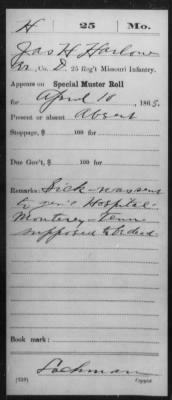 H 25 Mo.
Jas H Harlow
Co. D, 25 Reg't Missouri Infantry.
Appears on Special Muster Roll
for April 10, 1863.
Present or absent Absent
Stoppage, $ 100 for
Due Gov't, $ 100 for
Remarks: Sick - was sent
to gen'l Hospital -
Monterey - Tenn
supposed to be dead
Book mark:
Lochman
Copyist